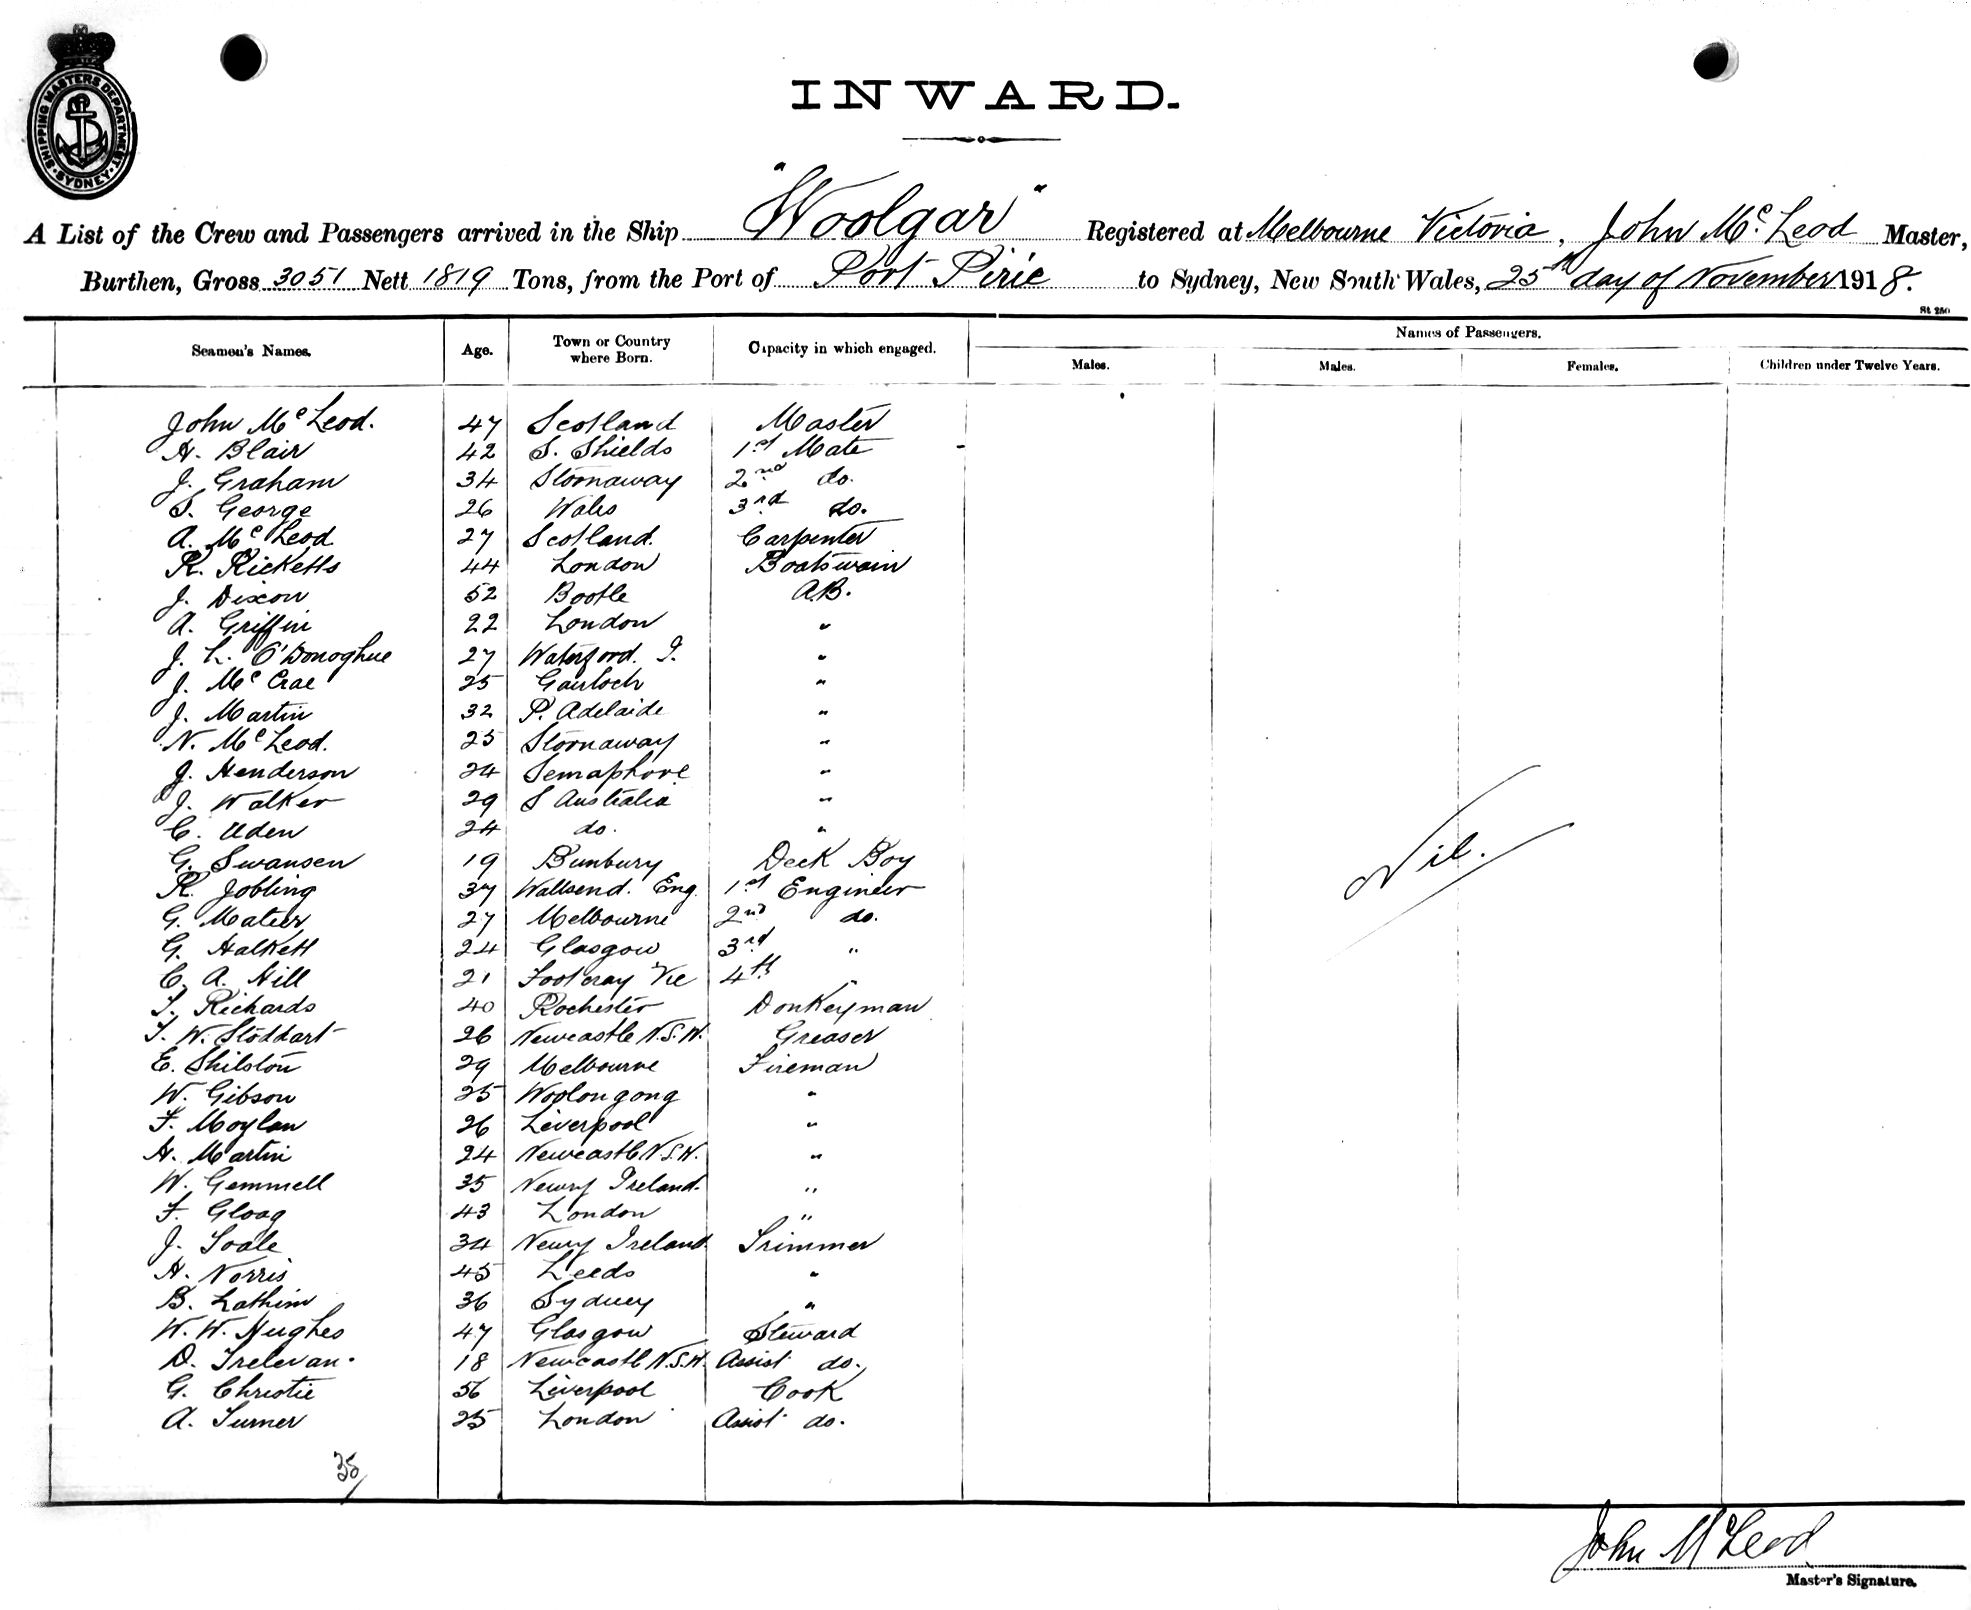 SHIPPING MASTERS DEPARTMENT
SYDNEY
INWARD.
A List of the Crew and Passengers arrived in the Ship "Woolgar" Registered at Melbourne Victoria, John McLeod Master,
Burthen, Gross 3051 Nett 1819 Tons, from the Port of Port Pirie to Sydney, New South Wales, 25th day of November 1918.
St 250
Seamen's Names. Age. Town or Country where Born. Capacity in which engaged. Names of Passengers.
Males. Males. Females. Children under Twelve Years.
John McLeod. 47 Scotland Master
H. Blair 42 S. Shields 1st Mate
J. Graham 34 Stornaway 2nd do.
S. George 26 Wales 3rd do.
A. McLeod 27 Scotland. Carpenter
R. Ricketts 44 London Boatswain
J. Dixon 52 Bootle A.B.
A. Griffin 22 London "
J. L. O'Donoghue 27 Waterford. I. "
J. McCrae 25 Gairloch "
J. Martin 32 P. Adelaide "
N. McLeod. 25 Stornaway "
J. Henderson 24 Semaphore "
J. Walker 29 S Australia "
C. Uden 24 do. "
G. Swansen 19 Bunbury Deck Boy
R. Jobling 37 Wallsend. Eng. 1st Engineer
G. Mateer 27 Melbourne 2nd do.
G. Halkett 24 Glasgow 3rd "
C. A. Hill 21 Footcray Vic 4th "
T. Richards 40 Rochester Donkeyman
T. W. Stoddart 26 Newcastle N.S.W. Greaser
E. Shilston 29 Melbourne Fireman
W. Gibson 25 Woolongong "
F. Moylan 26 Liverpool "
H. Martin 24 Newcastle N.S.W. "
W. Gemmell 35 Newry Ireland. "
F. Gloag 43 London "
J. Toale 34 Newry Ireland Trimmer
H. Norris 45 Leeds "
B. Lathim 36 Sydney "
W. W. Hughes 47 Glasgow Steward
D. Trelevan. 18 Newcastle N.S.W. Assist do.
G. Christie 56 Liverpool Cook
A. Turner 25 London Assist do.
Nil.
35/
John McLeod
Master's Signature.